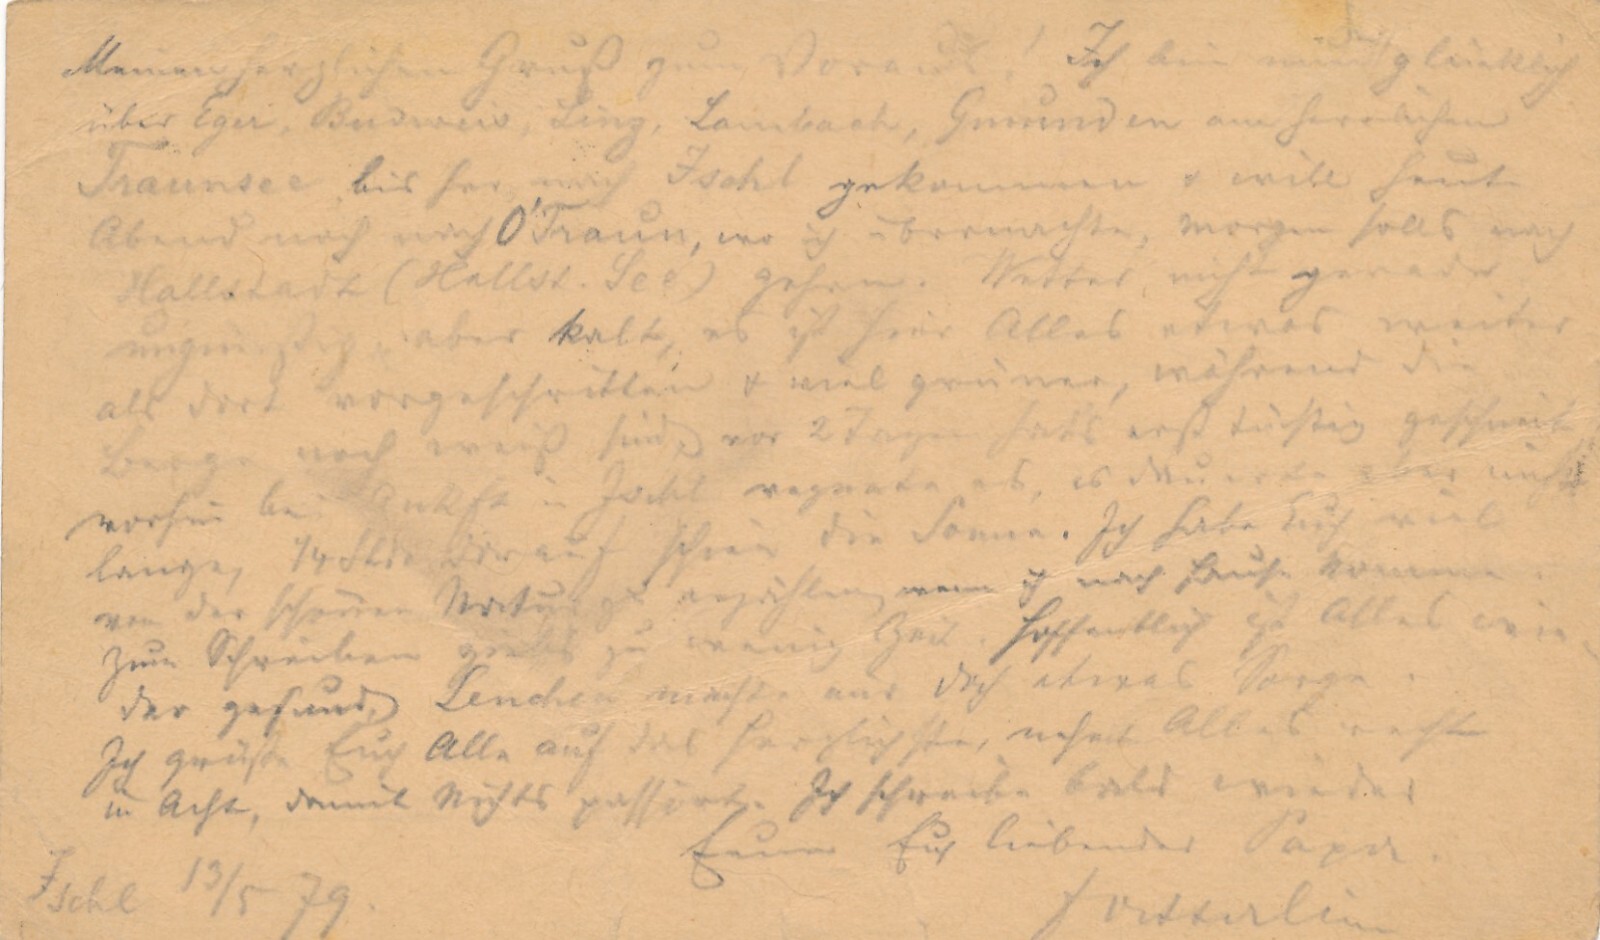 Meinen herzlichen Gruß zum Voraus! Ich bin nun glücklich
über Eger, Budweis, Linz, Lambach, Gmunden am herrlichen
Traunsee bis her nach Ischl gekommen & will heute
Abend noch nach O'Traun, wo ich übernachte, morgen solls nach
Hallstadt (Hallst. See) gehen. Wetter nicht gerade
ungünstig, aber kalt, es ist hier Alles etwas weiter
als dort vorgeschritten & viel grüner, während die
Berge noch weiß sind, vor 2 Tagen hats erst tüchtig geschneit
vorhin bei Ankft in Ischl regnete es, es dauerte aber nicht
lange, 1/4 Stde darauf schien die Sonne. Ich habe Euch viel
von der schönen Natur zu erzählen, wenn ich nach Hause komme.
Zum Schreiben giebts zu wenig Zeit. Hoffentlich ist Alles wie-
der gesund, Lenchen machte mir doch etwas Sorge.
Ich grüße Euch Alle auf das herzlichste, nehmt Alles recht
in Acht, damit Nichts passirt. Ich schreibe bald wieder
Euer Euch liebender Papa.
Ischl 13/5 79.